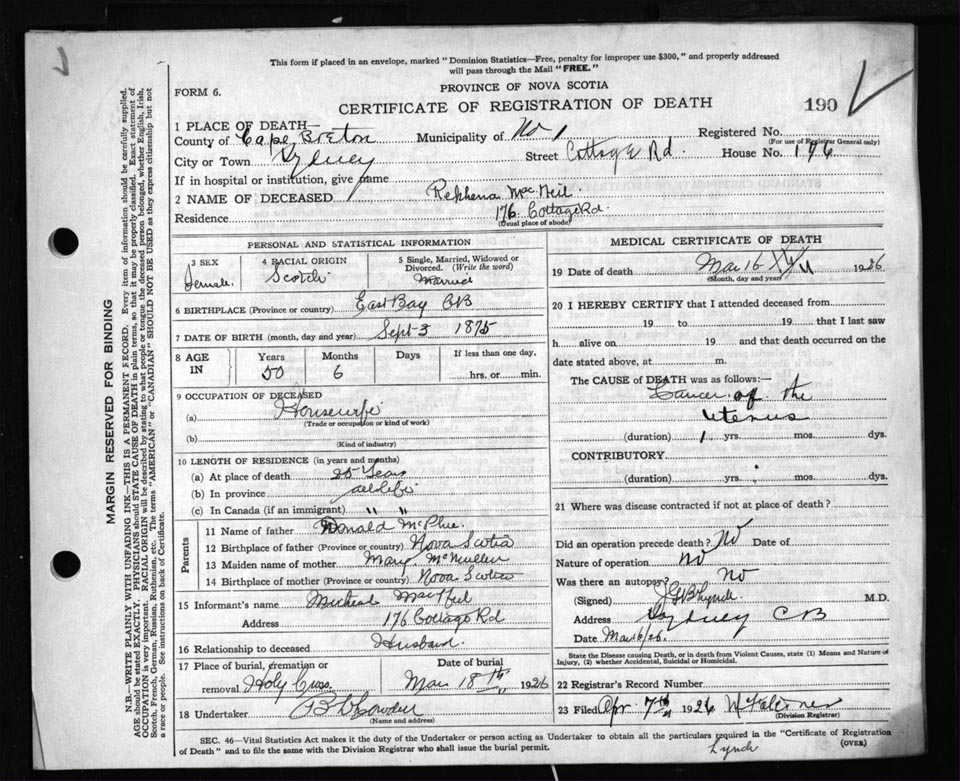 This form if placed in an envelope, marked "Dominion Statistics—Free, penalty for improper use $300," and properly addressed
will pass through the Mail "FREE."
FORM 6.
PROVINCE OF NOVA SCOTIA
CERTIFICATE OF REGISTRATION OF DEATH
190
1 PLACE OF DEATH—
County of Cape Breton Municipality of No 1 Registered No.
(For use of Registrar General only)
City or Town Sydney Street Cottage Rd. House No. 176
If in hospital or institution, give name
2 NAME OF DECEASED Mac Neil
Residence 176 Cottage Rd.
(Usual place of abode)
PERSONAL AND STATISTICAL INFORMATION
3 SEX
Female.
4 RACIAL ORIGIN
Scotch
5 Single, Married, Widowed or
Divorced. (Write the word)
Married
6 BIRTHPLACE (Province or country) East Bay CB
7 DATE OF BIRTH (month, day and year) Sept 3 1875
8 AGE
IN
Years
50
Months
6
Days
If less than one day,
hrs. or min.
9 OCCUPATION OF DECEASED
(a) Housewife
(Trade or occupation or kind of work)
(b)
(Kind of industry)
10 LENGTH OF RESIDENCE (in years and months)
(a) At place of death 25 Years
(b) In province all life
(c) In Canada (if an immigrant) " "
Parents
11 Name of father Donald McPhee
12 Birthplace of father (Province or country) Nova Scotia
13 Maiden name of mother Mary McMullen
14 Birthplace of mother (Province or country) Nova Scotia
15 Informant's name Micheal MacNeil
Address 176 Cottage Rd
16 Relationship to deceased Husband.
17 Place of burial, cremation or
removal Holy Cross
Date of burial
Mar 18th 1926
18 Undertaker
(Name and address)
MEDICAL CERTIFICATE OF DEATH
19 Date of death Mar 16 1926
(Month, day and year)
20 I HEREBY CERTIFY that I attended deceased from
19 to 19 that I last saw
h alive on 19 and that death occurred on the
date stated above, at m.
The CAUSE of DEATH was as follows:—
Cancer of the
Uterus
(duration) 1 yrs. mos. dys.
CONTRIBUTORY
(duration) yrs. mos. dys.
21 Where was disease contracted if not at place of death?
Did an operation precede death? No Date of
Nature of operation No
Was there an autopsy? No
(Signed) Lynch M.D.
Address Sydney CB
Date
State the Disease causing Death, or in death from Violent Causes, state (1) Means and Nature of
Injury, (2) whether Accidental, Suicidal or Homicidal.
22 Registrar's Record Number
23 Filed Apr. 7th 1926
(Division Registrar)
SEC. 46—Vital Statistics Act makes it the duty of the Undertaker or person acting as Undertaker to obtain all the particulars required in the "Certificate of Registration
of Death" and to file the same with the Division Registrar who shall issue the burial permit.
Lynch
(OVER)
MARGIN RESERVED FOR BINDING
N.B.—WRITE PLAINLY WITH UNFADING INK—THIS IS A PERMANENT RECORD. Every item of information should be carefully supplied.
AGE should be stated EXACTLY. PHYSICIANS should STATE CAUSE OF DEATH in plain terms, so that it may be properly classified. Exact statement of
OCCUPATION is very important. RACIAL ORIGIN will be described by stating to what people or tongue the deceased person belonged, whether English, Irish,
Scotch, French, German, Russian, Ruthenian, etc. The terms "AMERICAN" or "CANADIAN" SHOULD NOT BE USED as they express citizenship but not
a race or people. See instructions on back of Certificate.